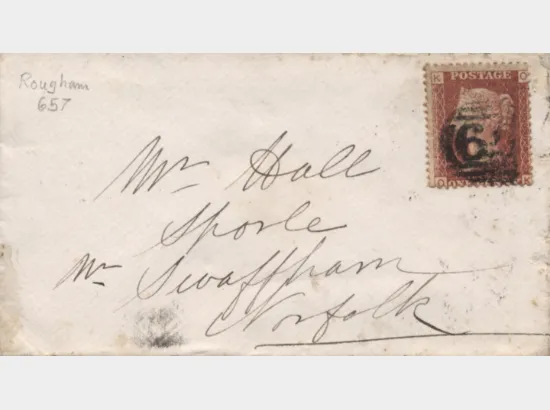 Rougham
657
K O
POSTAGE
Mr Hall
Sporle
nr Swaffham
Norfolk